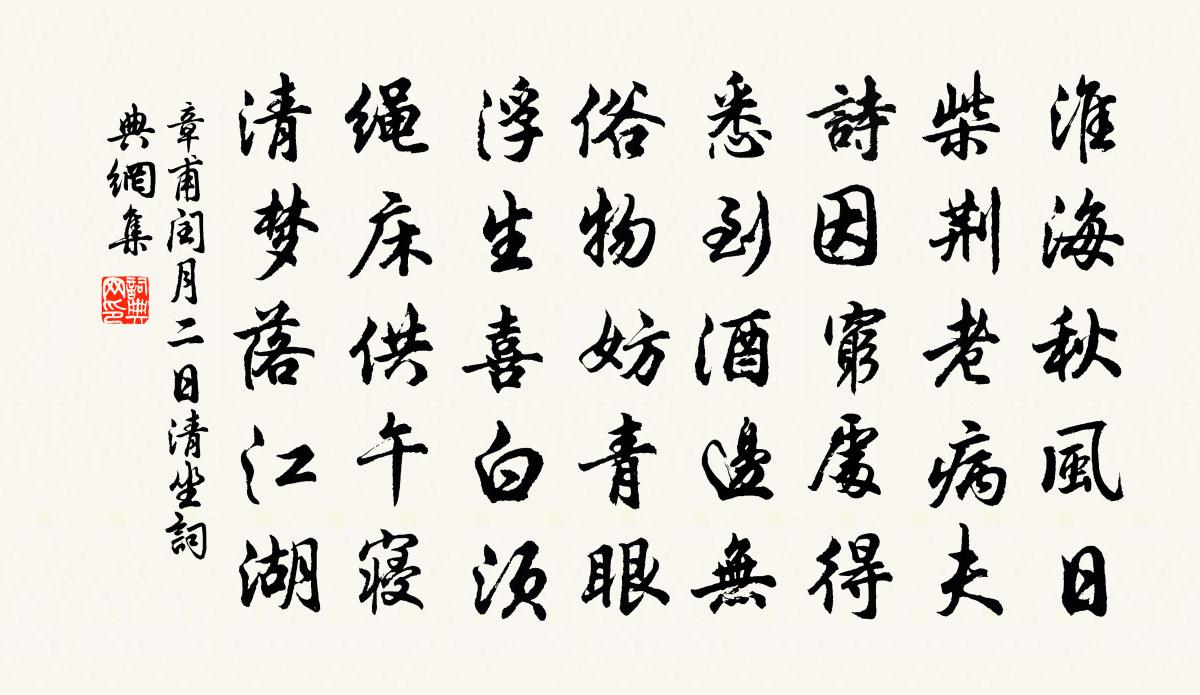 淮海秋風日
柴荆老病夫
詩因窮處得
悉到酒邊無
俗物妨青眼
浮生喜白须
绳床供午寝
清梦落江湖
章甫闰月二日清坐詞
典網集
詞典网印